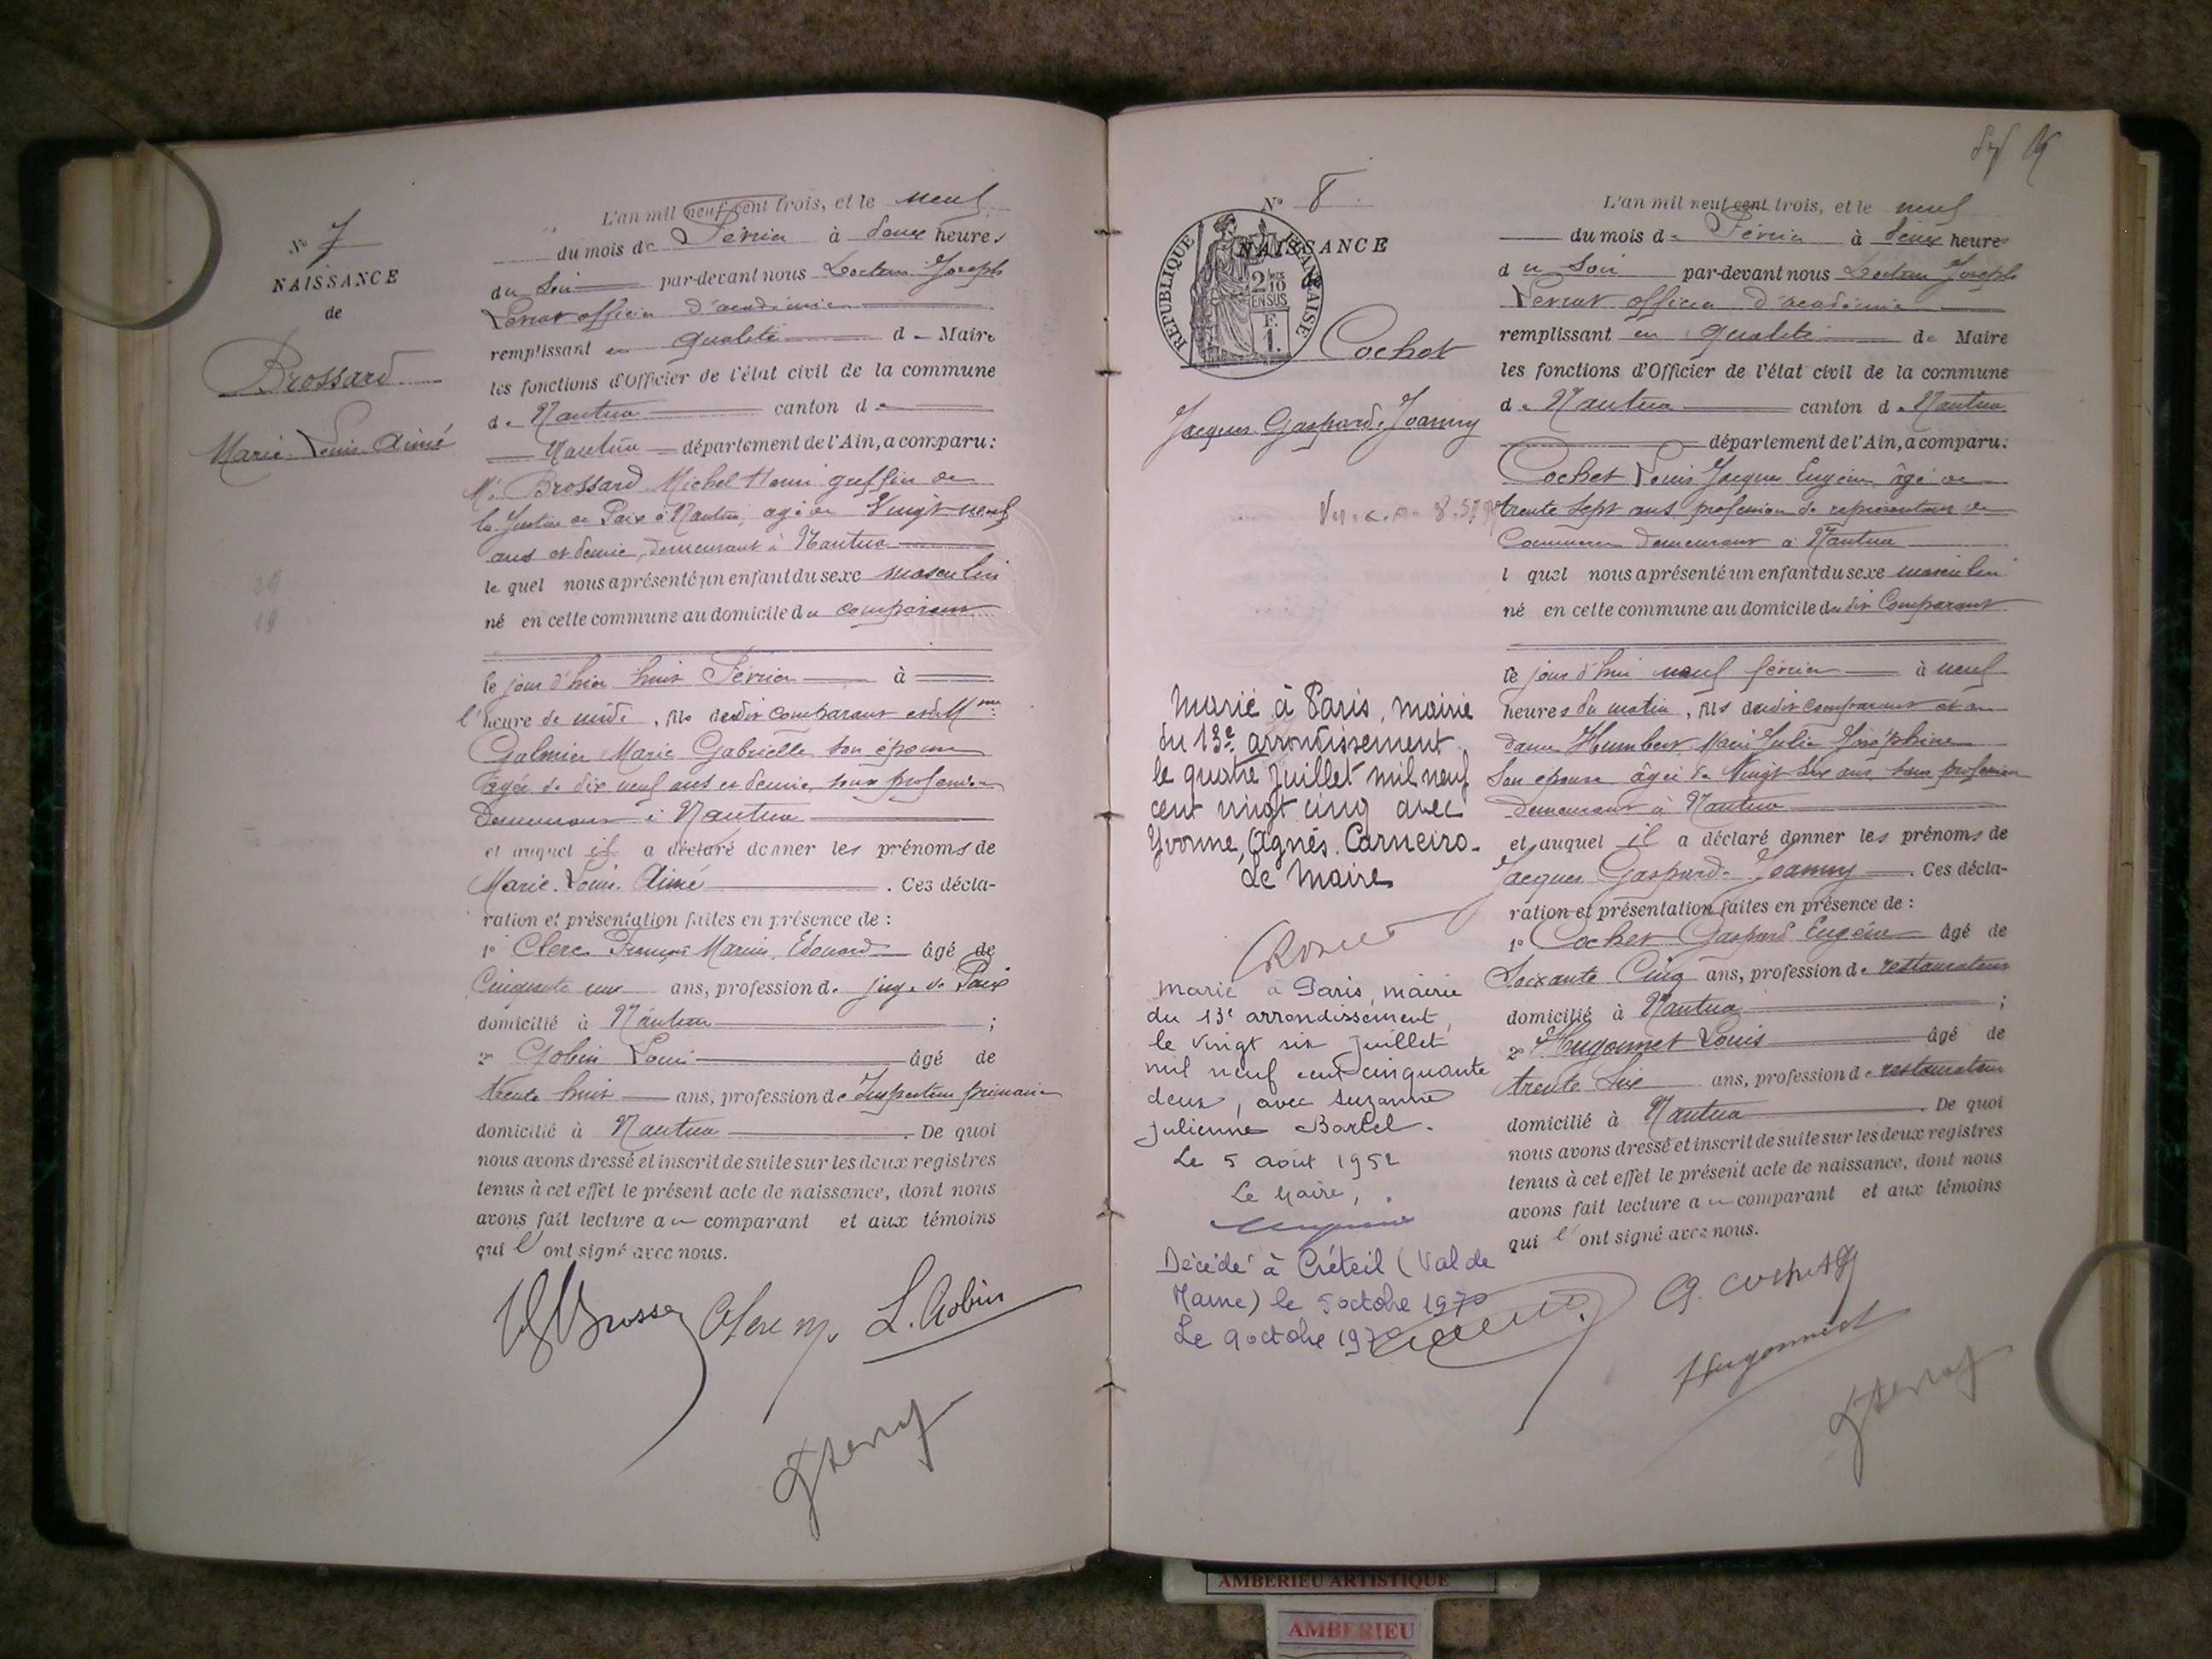 N° 7
NAISSANCE
de
Brossard
Marie Louis Aimé
L'an mil neuf cent trois, et le neuf
du mois de Février à deux heures
du soir par-devant nous Docteur Joseph
officier d'académie
remplissant en qualité de Maire
les fonctions d'Officier de l'état civil de la commune
de Nantua canton de
Nantua département de l'Ain, a comparu:
Mr Brossard Michel Henri greffier de
la Justice de Paix à Nantua agé de Vingt-neuf
ans et demie, demeurant à Nantua
le quel nous a présenté un enfant du sexe masculin
né en cette commune au domicile du comparant
le jour d'hier huit Février à
l'heure de midi, fils dudit comparant et de Mme
Galmier Marie Gabrielle son épouse
âgée de dix neuf ans et demie, sans profession
demeurant à Nantua
et auquel il a déclaré donner les prénoms de
Marie Louis Aimé. Ces décla-
ration et présentation faites en présence de :
1° Clerc François Marius Edouard âgé de
Cinquante une ans, profession de juge de Paix
domicilié à Nantua ;
2° Gobin Louis âgé de
trente huit ans, profession de Inspecteur primaire
domicilié à Nantua. De quoi
nous avons dressé et inscrit de suite sur les deux registres
tenus à cet effet le présent acte de naissance, dont nous
avons fait lecture au comparant et aux témoins
qui l'ont signé avec nous.
Brossard
L. Gobin
N° 8
NAISSANCE
de
REPUBLIQUE FRANÇAISE
2/10
EN SUS
F.
1.
Cochet
Jacques Gaspard Joanny
Marié à Paris, mairie
du 13e arrondissement
le quatre juillet mil neuf
cent vingt cinq avec
Yvonne, Agnés Carneiro.
Le Maire
Marié à Paris, mairie
du 13e arrondissement,
le vingt six juillet
mil neuf cent cinquante
deux, avec Suzanne
Julienne Bartel.
Le 5 août 1952
Le Maire,
Décédé à Créteil (Val de
Marne) le 5 octobre 1970
Le 9 octobre 1970
L'an mil neuf cent trois, et le neuf
du mois de Février à deux heures
du soir par-devant nous Docteur Joseph
officier d'académie
remplissant en qualité de Maire
les fonctions d'Officier de l'état civil de la commune
de Nantua canton de Nantua
département de l'Ain, a comparu:
Cochet Louis Jacques Eugène âgé de
trente sept ans profession de représentant de
Commerce demeurant à Nantua
l quel nous a présenté un enfant du sexe masculin
né en cette commune au domicile du dit Comparant
le jour d'hui neuf février à neuf
heures du matin, fils dudit comparant et de
dame Humbert Marie Julie Joséphine
son épouse âgée de Vingt six ans, sans profession
demeurant à Nantua
et auquel il a déclaré donner les prénoms de
Jacques Gaspard Joanny. Ces décla-
ration et présentation faites en présence de :
1° Cochet Gaspard Eugène âgé de
Soixante Cinq ans, profession de restaurateur
domicilié à Nantua ;
2° Hugonnet Louis âgé de
trente Six ans, profession de restaurateur
domicilié à Nantua. De quoi
nous avons dressé et inscrit de suite sur les deux registres
tenus à cet effet le présent acte de naissance, dont nous
avons fait lecture au comparant et aux témoins
qui l'ont signé avec nous.
Hugonnet
AMBERIEU ARTISTIQUE
AMBERIEU